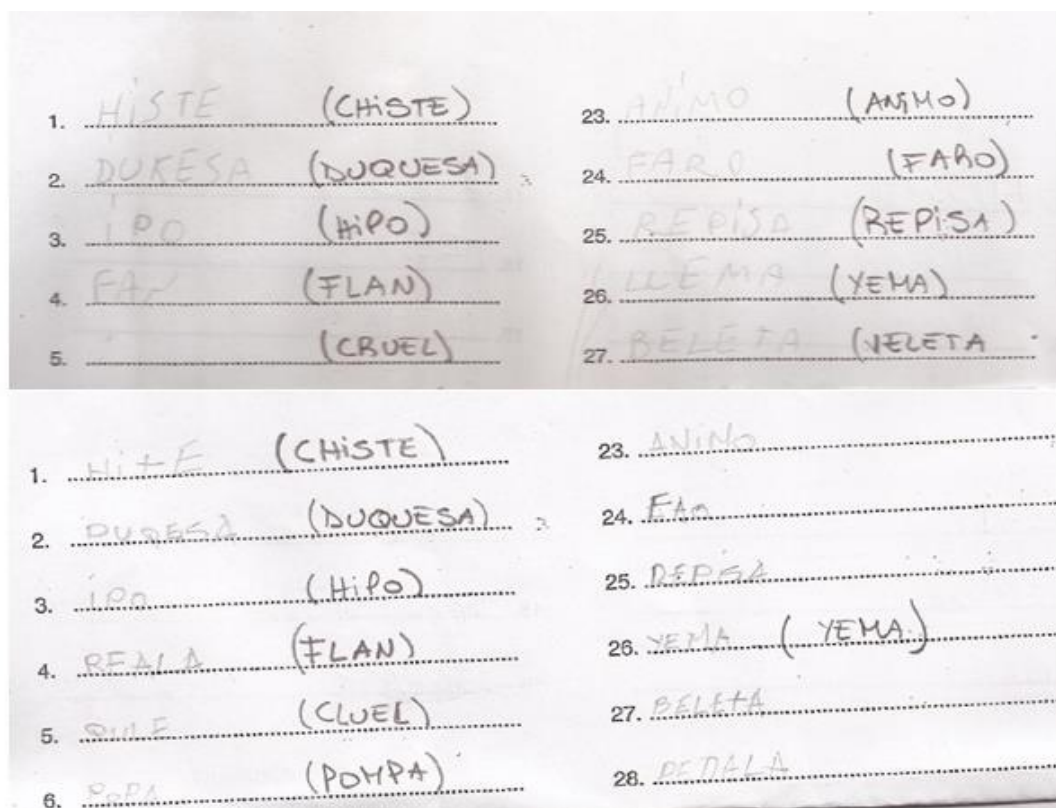 1. HISTE (CHISTE)
2. DUKESA (DUQUESA)
3. IPO (HIPO)
4. FAN (FLAN)
5. (CRUEL)
23. ANIMO (ANIMO)
24. FARO (FARO)
25. REPISA (REPISA)
26. LLEMA (YEMA)
27. BELETA (VELETA
1. HITE (CHISTE)
2. DUQESA (DUQUESA)
3. IPO (HIPO)
4. (FLAN)
5. (CLUEL)
6. POPA (POMPA)
23. ANIMO
24. FAO
25. REPISA
26. YEMA (YEMA)
27. BELETA
28. PEDALA